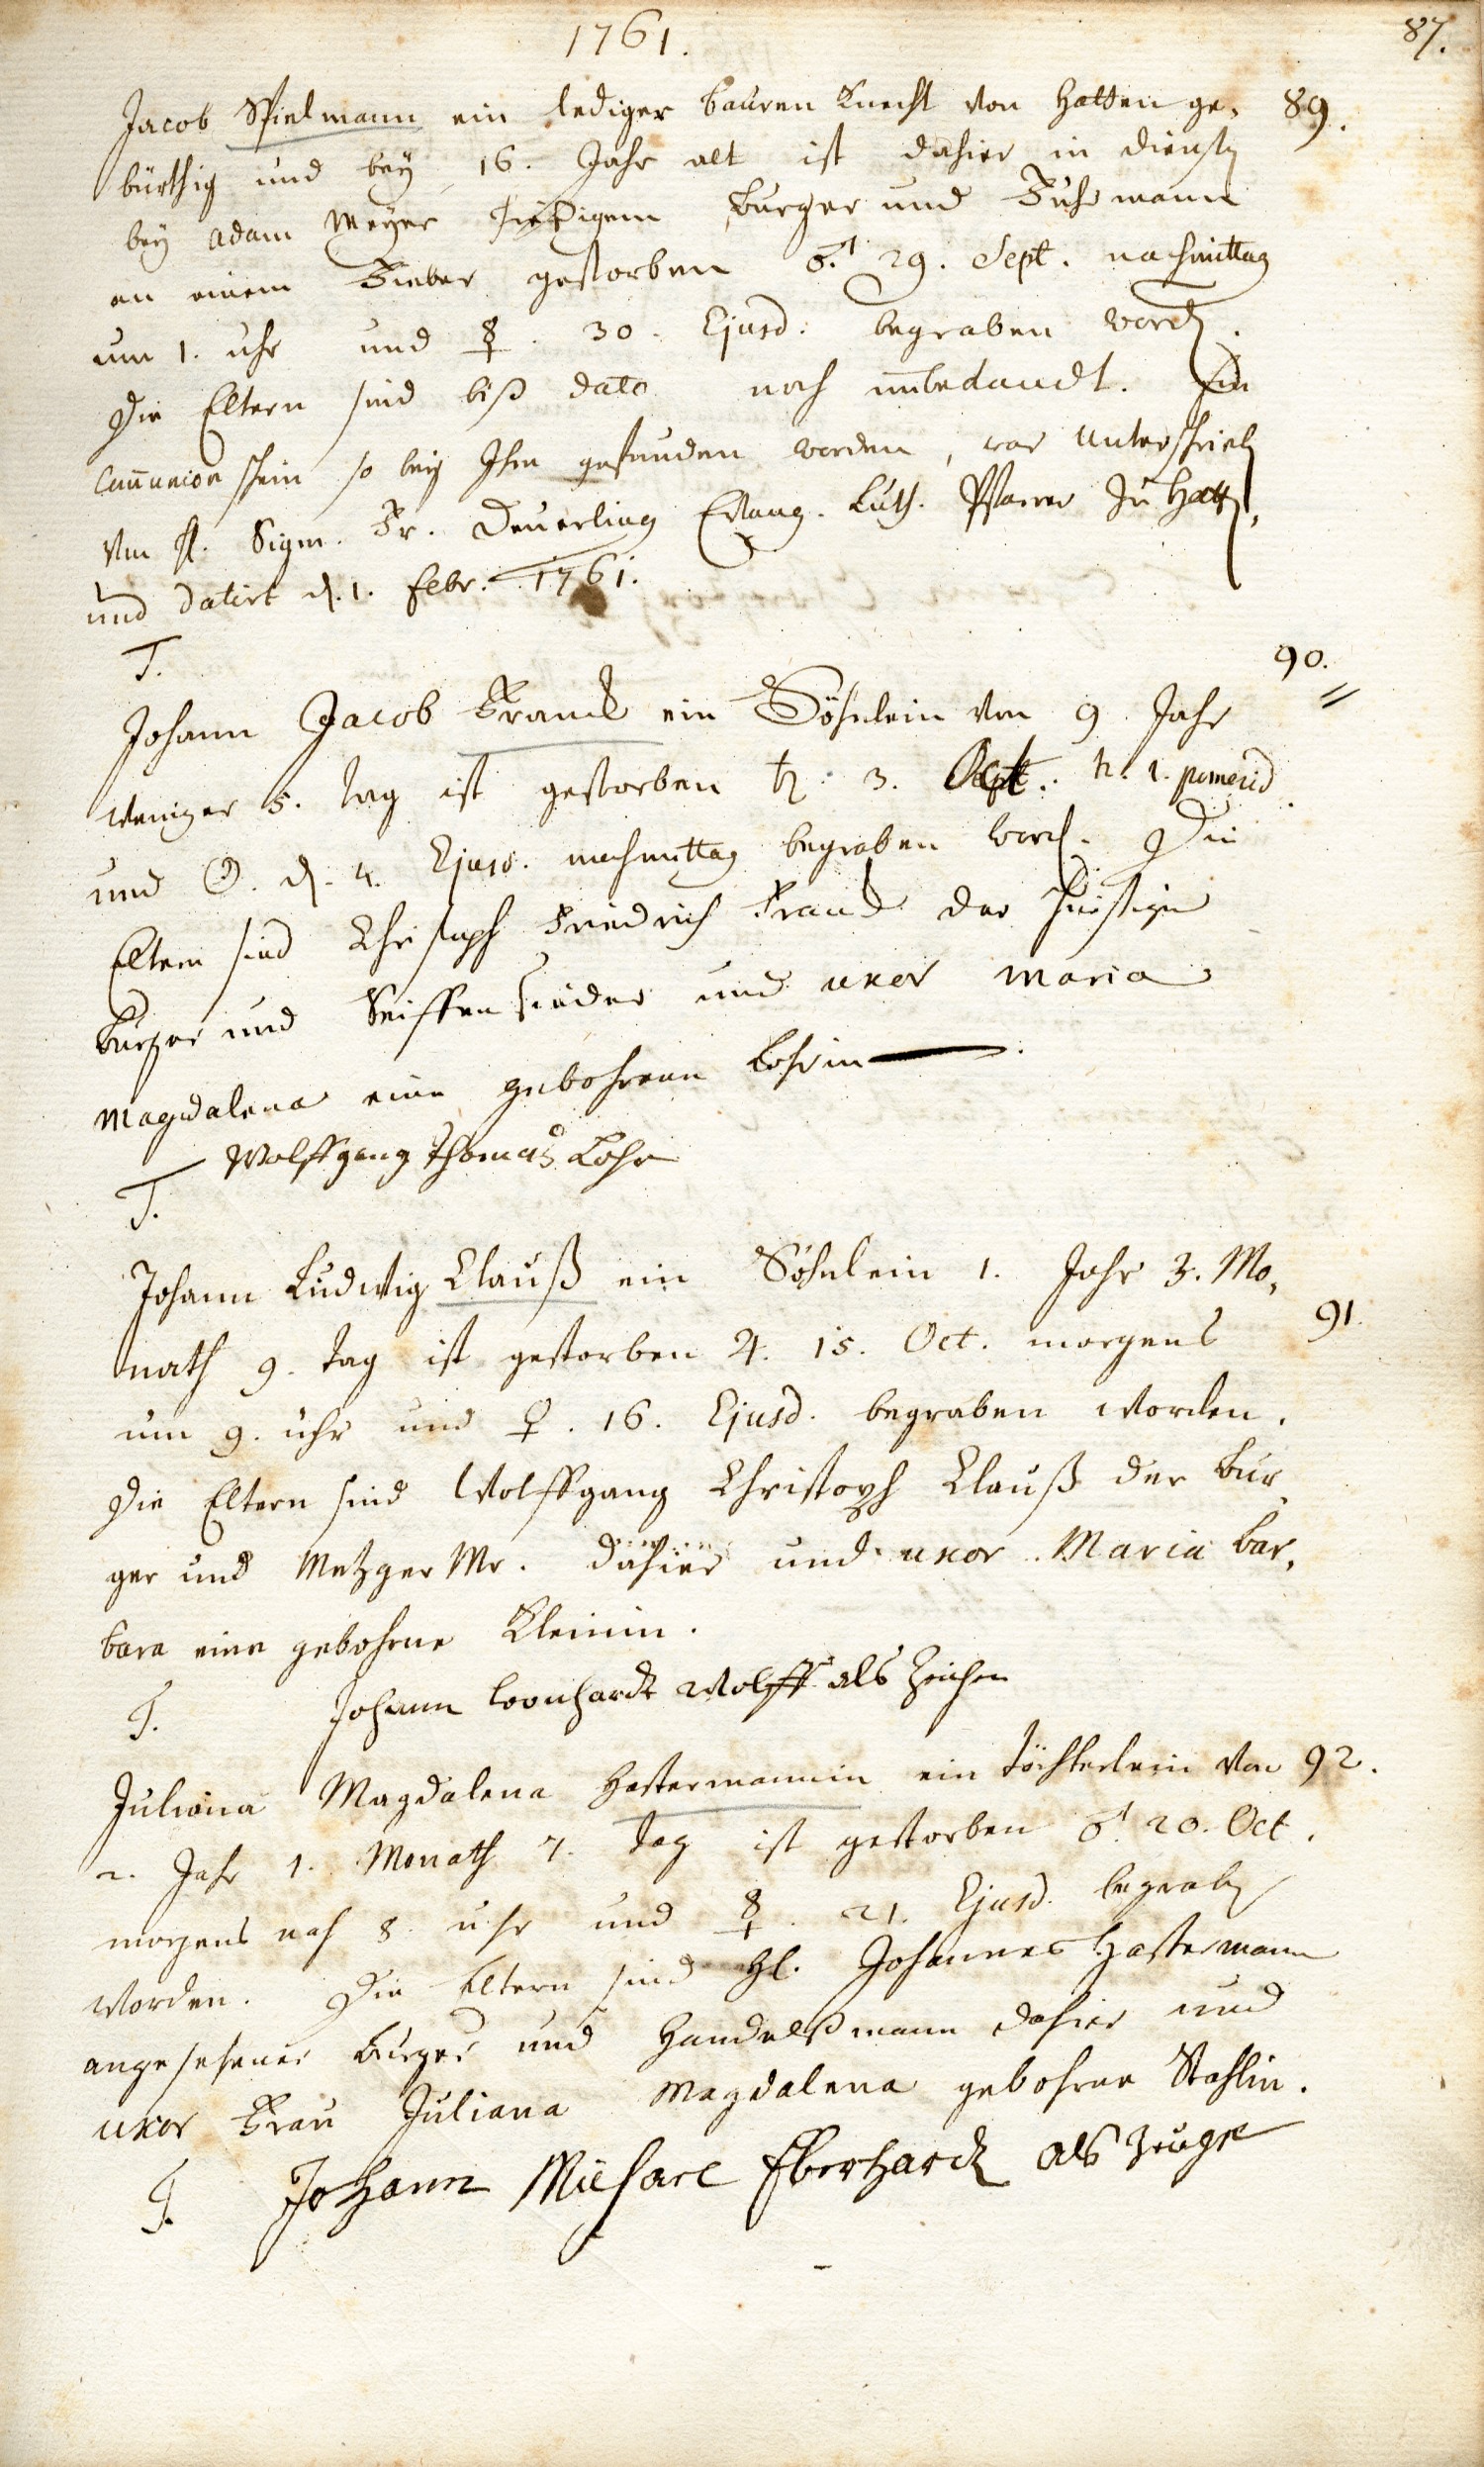 1761.
87.
Jacob Spielmann ein lediger bauren Knecht von Hatten ge- 89.
bürthig und bey 16. Jahr alt ist dahier in diensten
bey Adam Meyer hiesigem Burger und Fuhrmann
an einem Fieber gestorben ♂. 29. Sept. nachmittag
um 1. uhr und ☿. 30. Ejusd. begraben worden.
Die Eltern sind biß dato noch unbekandt. Ein
Communion schein so bey Ihm gefunden worden, war unterschrieben
von H. Sigm. Fr. Deuerling Evang. Luth. Pfarrer zu Hatten,
und datirt d. 1. Febr. 1761.
T.
90.
Johann Jacob Franck ein Söhnlein von 9 Jahr
weniger 5. tag ist gestorben ♄. 3. Oct. h. 1. pomerid.
und ☉. d. 4. Ejusd. nachmittag begraben word. Die
Eltern sind Christoph Friedrich Franck der hiesige
Burger und Seiffensieder und uxor Maria
Magdalena eine gebohrene Lohrin.
Wolffgang Thomas Lohr
T.
Johann Ludwig Clauß ein Söhnlein 1. Jahr 3. Mo-
nath 9. tag ist gestorben ♃. 15. Oct. morgens 91.
um 9. uhr und ♀. 16. Ejusd. begraben worden.
Die Eltern sind Wolffgang Christoph Clauß der Bur-
ger und Metzger Mr. dahier und uxor Maria Bar-
bara eine gebohrne Kleinin.
T. Johann Leonhardt Wolff als Zeichen
Juliana Magdalena Hastermannin ein Töchterlein von 92.
2. Jahr 1. Monath 7. tag ist gestorben ♂. 20. Oct.
morgens nach 8. uhr und ☿. 21. Ejusd. begraben
worden. Die Eltern sind Hl. Johannes Hastermann
angesehener Burger und Handelßmann dahier und
uxor Frau Juliana Magdalena gebohrne Stahlin.
T. Johann Michael Eberhardt als Zeuge